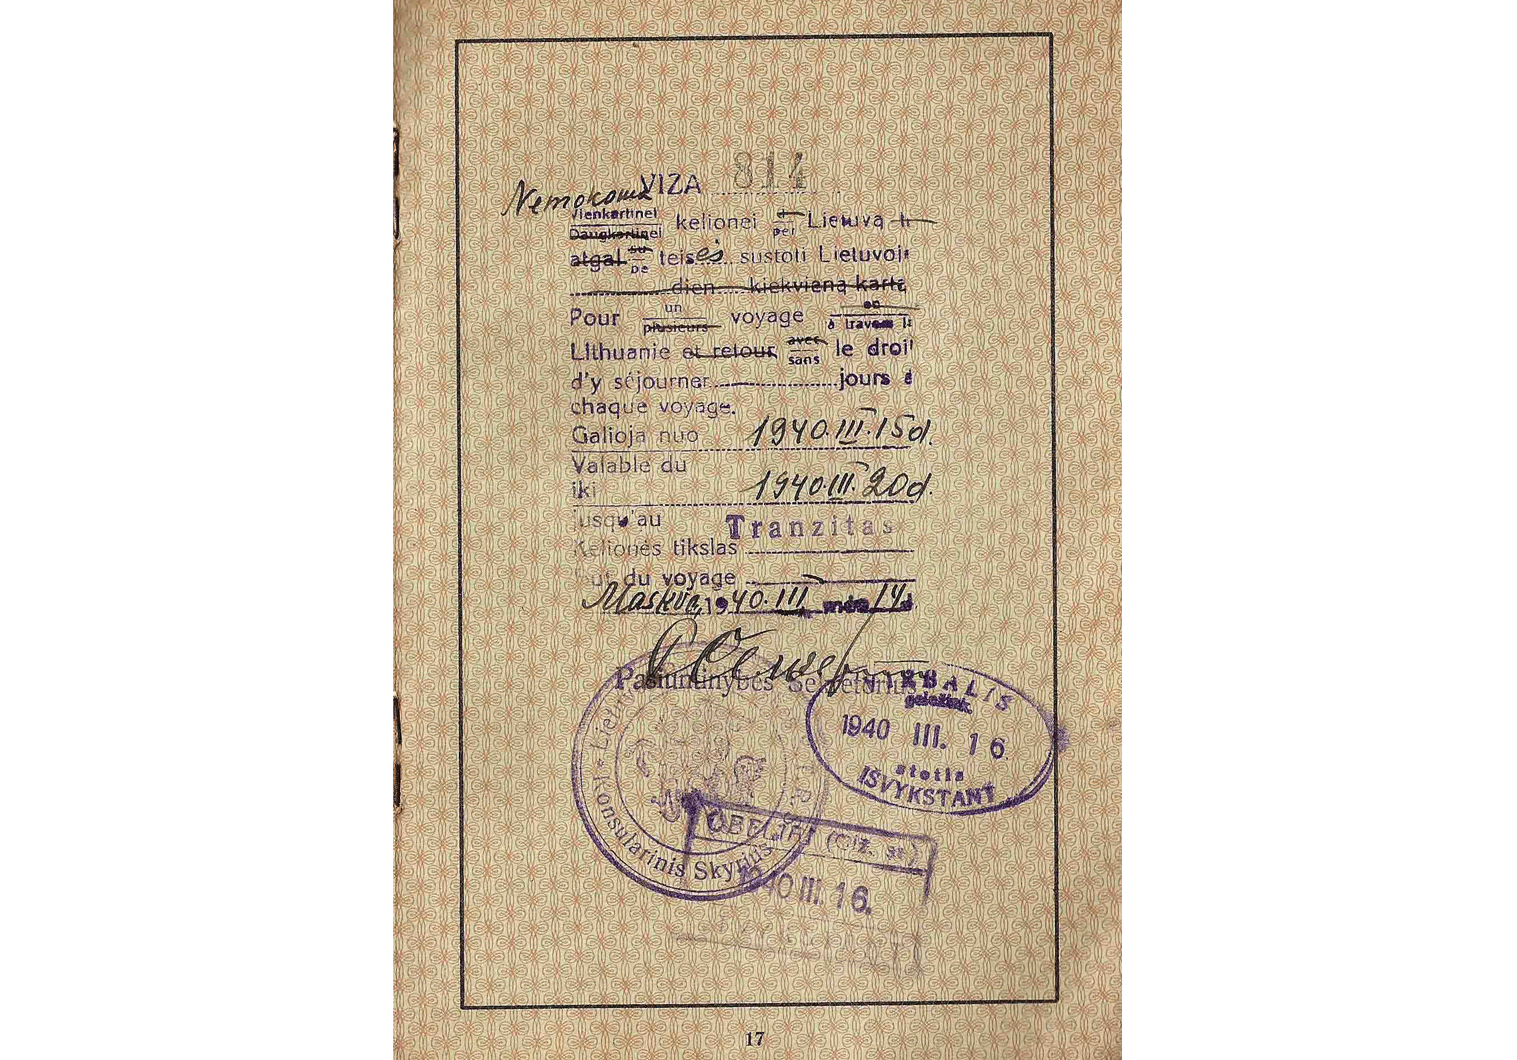 Nemokama VIZA 814
Vienkartinei
Daugkartinei
kelionei į Lietuvą ir
per
atgal su teisės sustoti Lietuvoje
be
dien kiekvieną kartą
Pour un voyage en
plusieurs à travers la
Lithuanie et retour avec le droit
sans
d'y séjourner jours à
chaque voyage.
Galioja nuo 1940.III.15d.
Valable du
iki 1940.III.20d.
jusqu'au
Tranzitas
Kelionės tikslas
But du voyage
Maskva, 1940.III mėn. 14 d
Pasiuntinybės Sekretorius
Konsularinis Skyrius
VIRBALIS
geležink.
1940 III. 16
stotis
IŠVYKSTANT
OBELIAI (Glž. st.)
1940 III. 16.
17